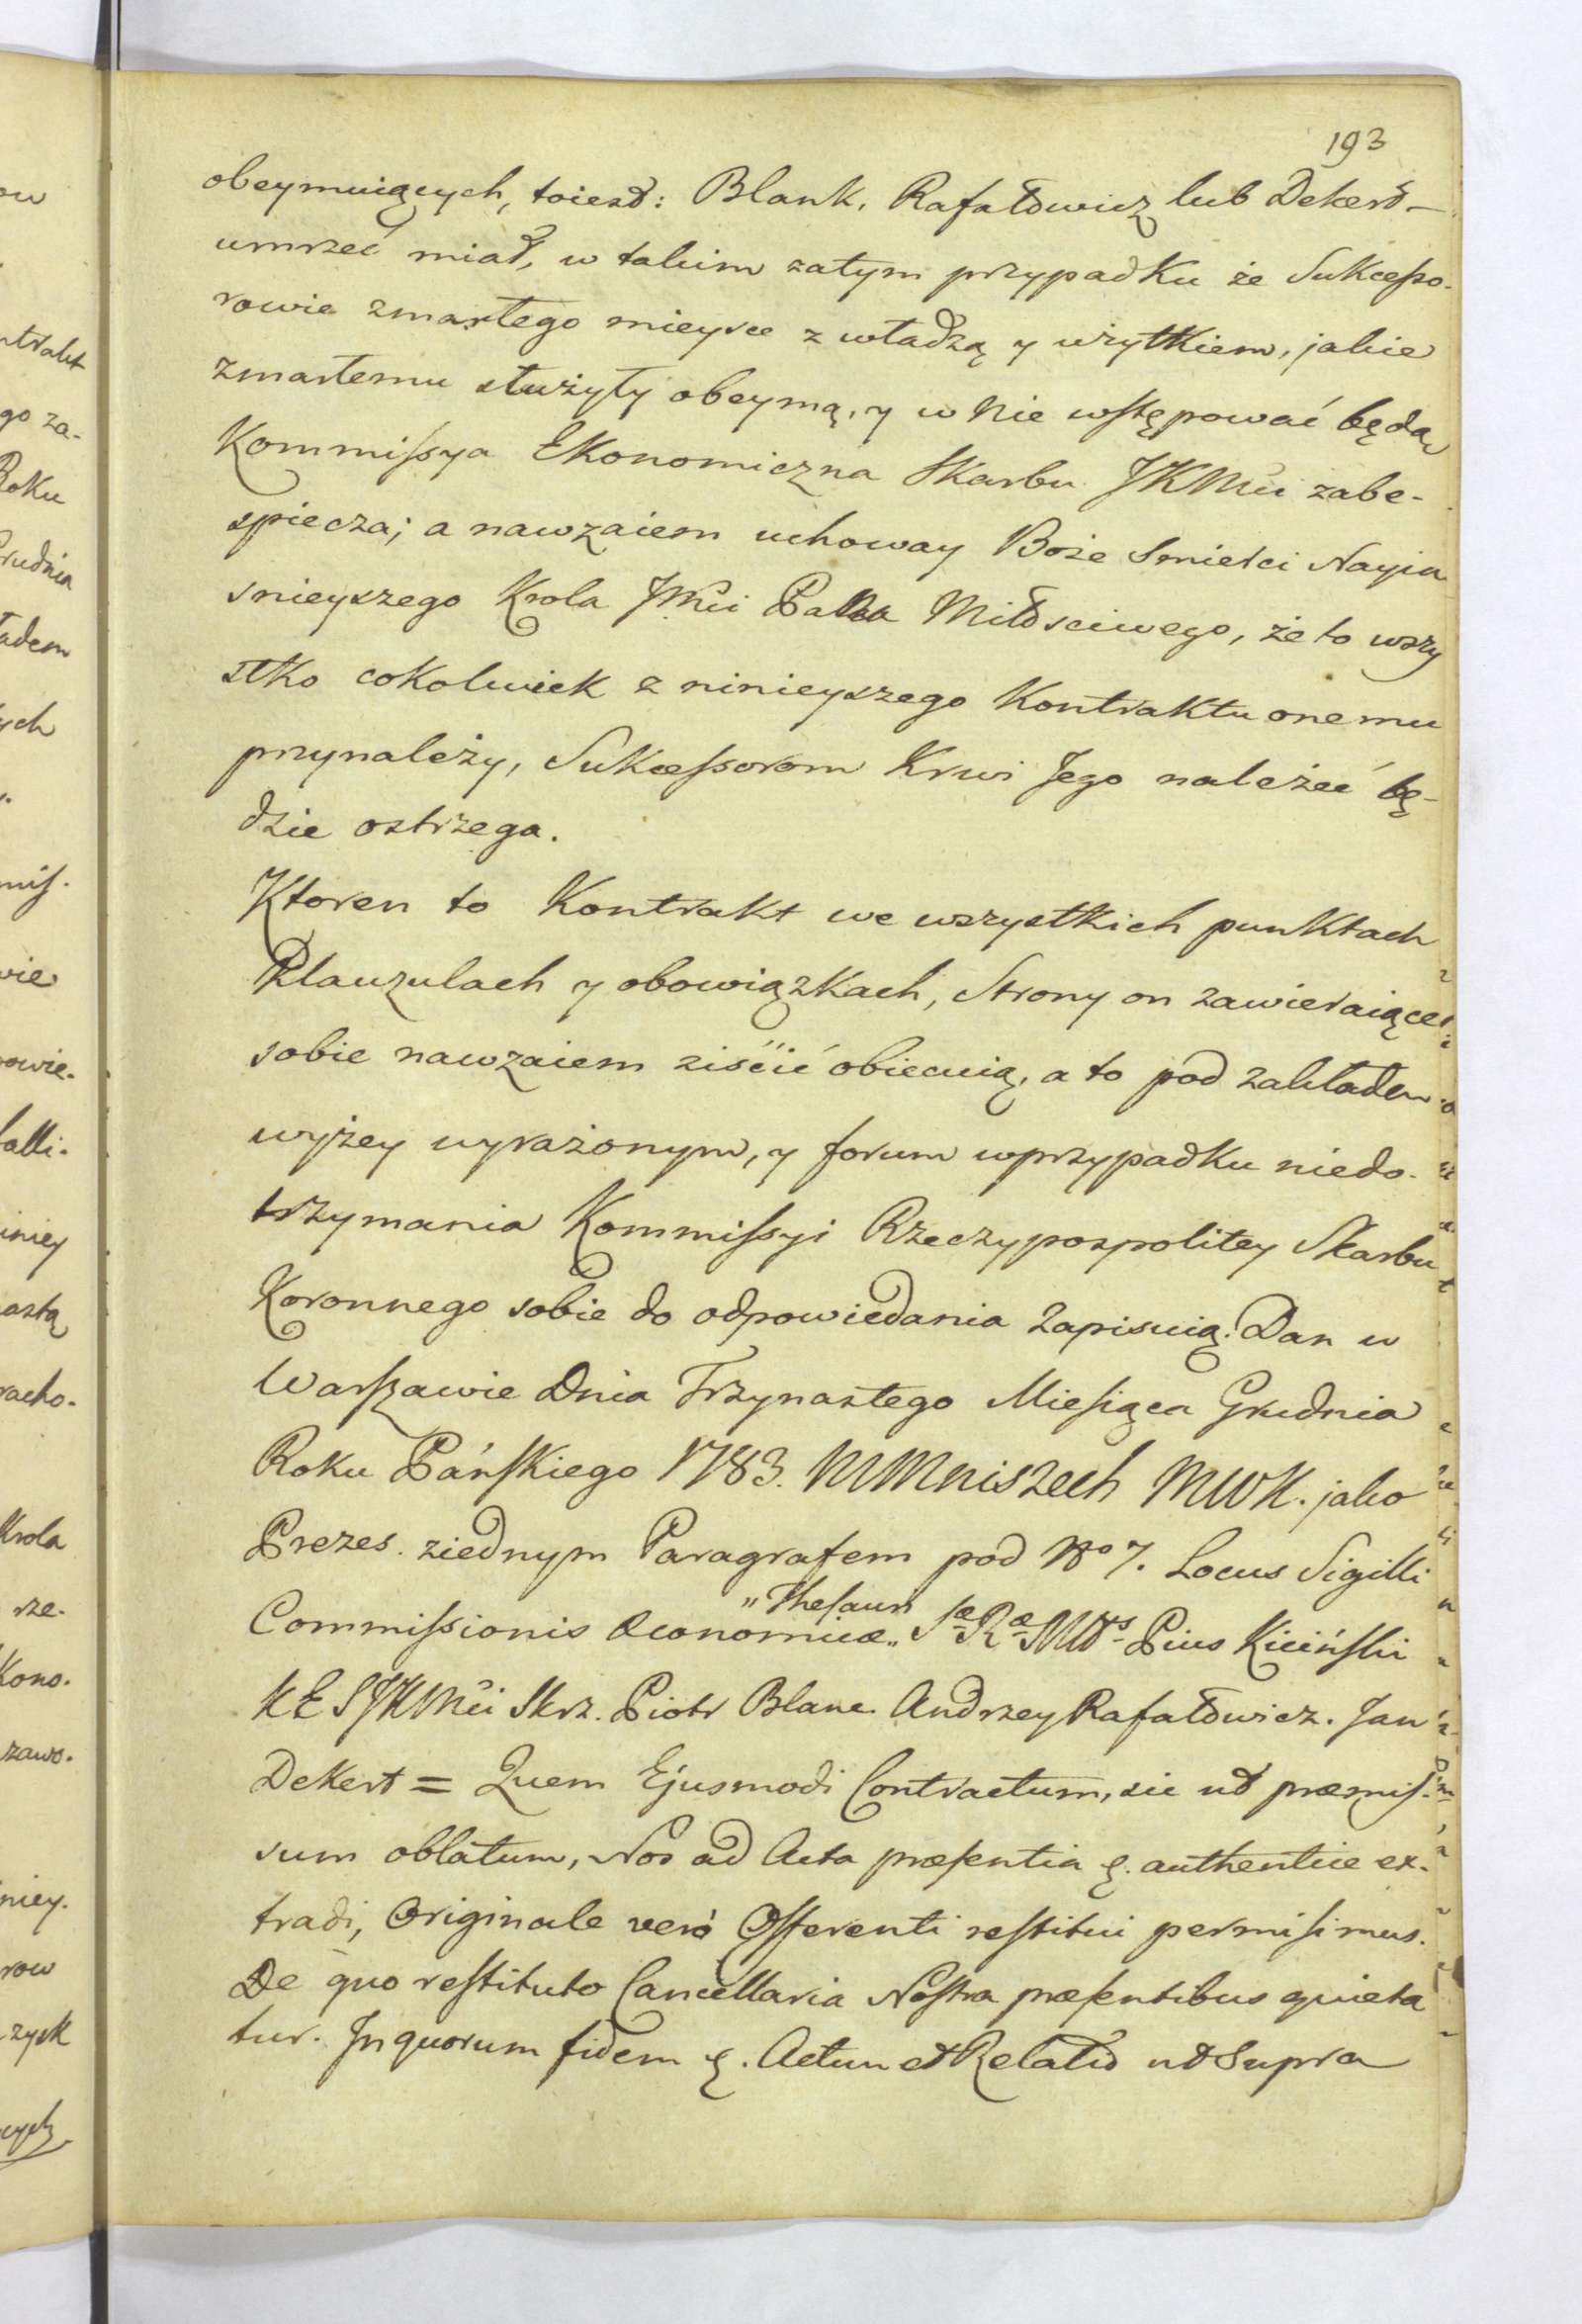 193
obeymuiących, toiest: Blank, Rafałowicz lub Dekert
umrzeć miał, w takim zatym przypadku że Sukcesso-
rowie zmarłego mieysce z władzą y użytkiem, jakie
zmarłemu służyły obeymą, y w nie wstępować będą,
Kommissya Ekonomiczna Skarbu JKMci zabe-
spiecza; a nawzaiem uchoway Boże Smierci Nayia
snieyszego Krola JMci Pana Miłosciwego, że to wszy
stko cokolwiek z ninieyszego Kontraktu onemu
przynależy, Sukcessorom Krwi Jego należeć bę-
dzie ostrzega.
Ktoren to Kontrakt we wszystkich punktach
Klauzulach y obowiązkach, Strony on zawieraiące
sobie nawzaiem ziśćić obiecuią, a to pod zakładem
wyżey wyrażonym, y forum wprzypadku niedo-
trzymania Kommissyi Rzeczypospolitey Skarbu
Koronnego sobie do odpowiedania zapisuią. Dan w
Warszawie Dnia Trzynastego Miesiąca Grudnia
Roku Pańskiego 1783. MMniszech MWK. jako
Prezes. ziednym Paragrafem pod No 7. Locus Sigilli
Commissionis Œconomicæ „Thesauri„ Sæ Ræ Mttis Pius Kiciński
KESJKMci Skrz. Piotr Blanc. Andrzey Rafałowicz. Jan
Dekert = Quem Ejusmodi Contractum, sic ut præmis-
sum oblatum, Nos ad Acta præsentia &. authentice ex-
tradi, Originale verò Offerenti restitui permisimus.
De quo restituto Cancellaria Nostra præsentibus quieta
tur. In quorum fidem &. Actum et Relatio ut Supra